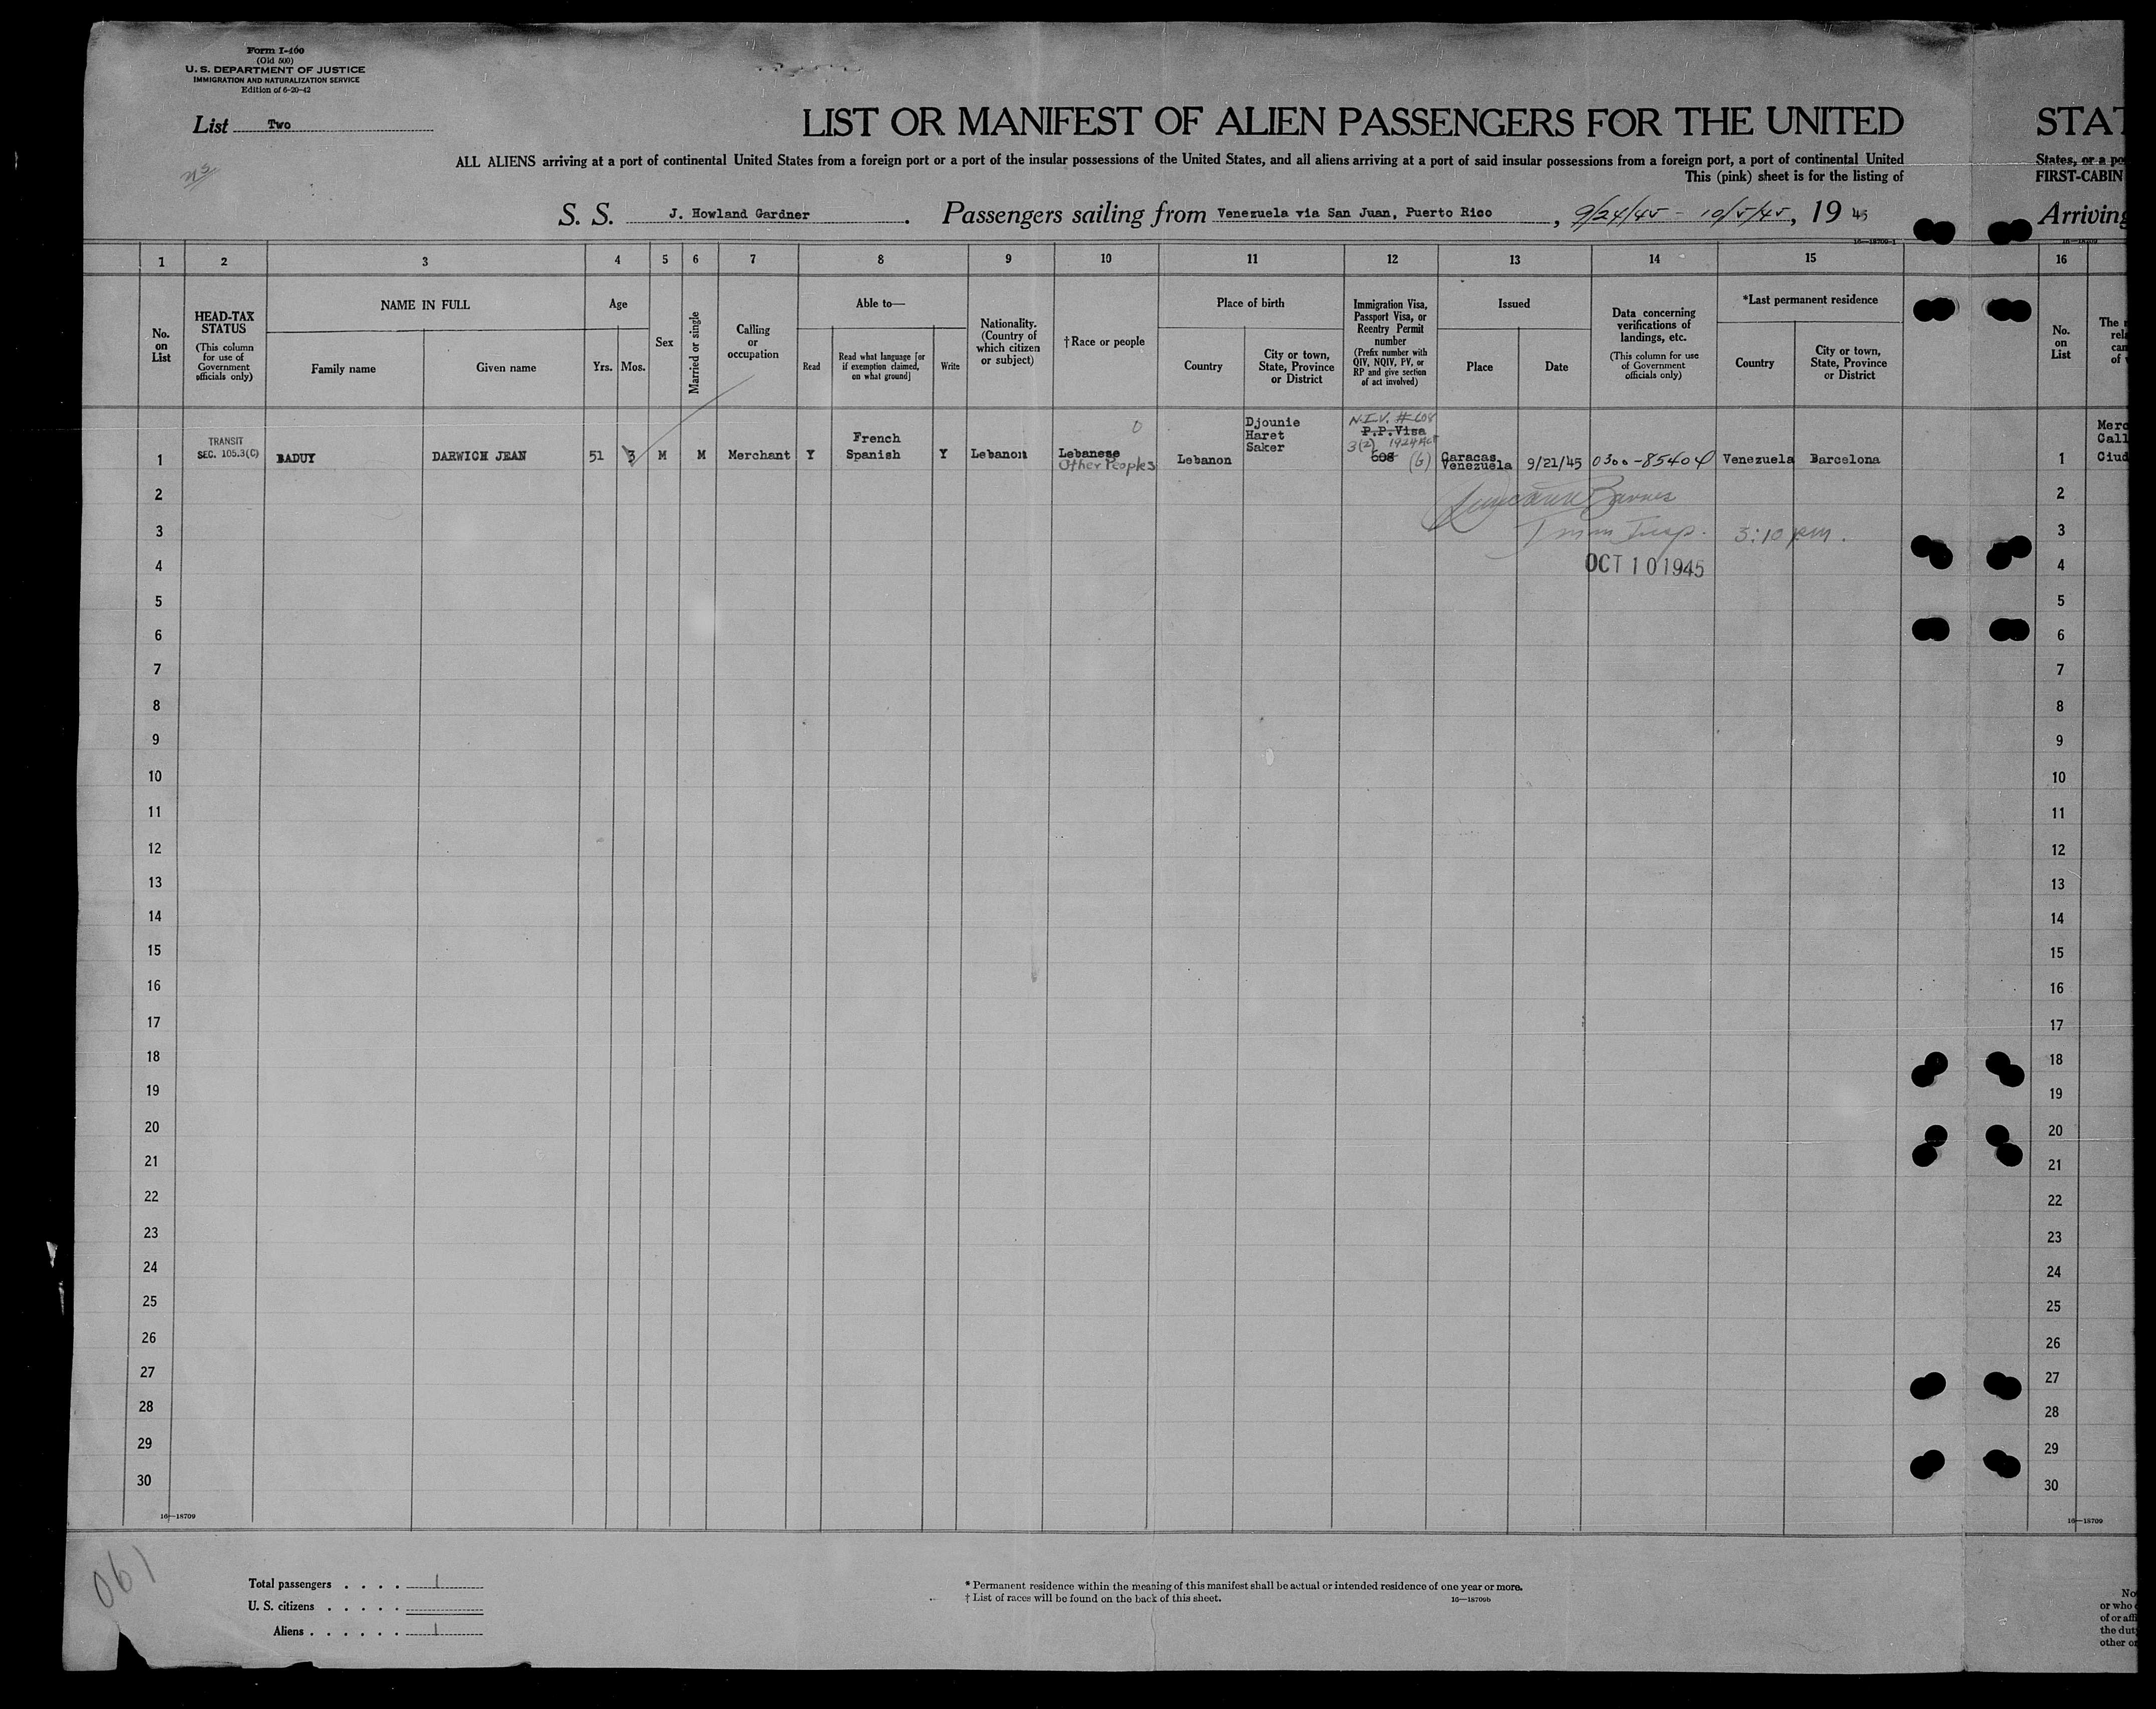 Form I-460
(Old 500)
U. S. DEPARTMENT OF JUSTICE
IMMIGRATION AND NATURALIZATION SERVICE
Edition of 6-20-42
List Two
LIST OR MANIFEST OF ALIEN PASSENGERS FOR THE UNITED STAT
ALL ALIENS arriving at a port of continental United States from a foreign port or a port of the insular possessions of the United States, and all aliens arriving at a port of said insular possessions from a foreign port, a port of continental United States, or a po
This (pink) sheet is for the listing of FIRST-CABIN
S. S. J. Howland Gardner. Passengers sailing from Venezuela via San Juan, Puerto Rico, 9/24/45 - 10/5/45, 19 45 Arriving
16—18709-1 16—18709
1 2 3 4 5 6 7 8 9 10 11 12 13 14 15 16
No. on List
HEAD-TAX STATUS
(This column for use of Government officials only)
NAME IN FULL
Family name
Given name
Age
Yrs. Mos.
Sex
Married or single
Calling or occupation
Able to—
Read
Read what language [or if exemption claimed, on what ground]
Write
Nationality. (Country of which citizen or subject)
†Race or people
Place of birth
Country
City or town, State, Province or District
Immigration Visa, Passport Visa, or Reentry Permit number
(Prefix number with QIV, NQIV, PV, or RP and give section of act involved)
Issued
Place
Date
Data concerning verifications of landings, etc.
(This column for use of Government officials only)
*Last permanent residence
Country
City or town, State, Province or District
No. on List
The
rel
can
of
1
TRANSIT
SEC. 105.3(C)
BADUY
DARWICH JEAN
51 3 M M Merchant Y
French
Spanish
Y
Lebanon
0
Lebanese
Other Peoples
Lebanon
Djounie
Haret
Saker
N.I.V. #608
P.P.Visa
3(2) 1924 Act
608 (6)
Caracas,
Venezuela
9/21/45
0300-85404
Venezuela
Barcelona
1
Merc
Call
Ciud
2 2
Barnes
3 Imm Insp. 3:10 pm. 3
4 OCT 10 1945 4
5 5
6 6
7 7
8 8
9 9
10 10
11 11
12 12
13 13
14 14
15 15
16 16
17 17
18 18
19 19
20 20
21 21
22 22
23 23
24 24
25 25
26 26
27 27
28 28
29 29
30 30
16—18709 16—18709
061
Total passengers . . . . 1
U. S. citizens . . . . .
Aliens . . . . . . 1
* Permanent residence within the meaning of this manifest shall be actual or intended residence of one year or more.
† List of races will be found on the back of this sheet. 16—18709b
No
or who
of or affi
the dut
other or